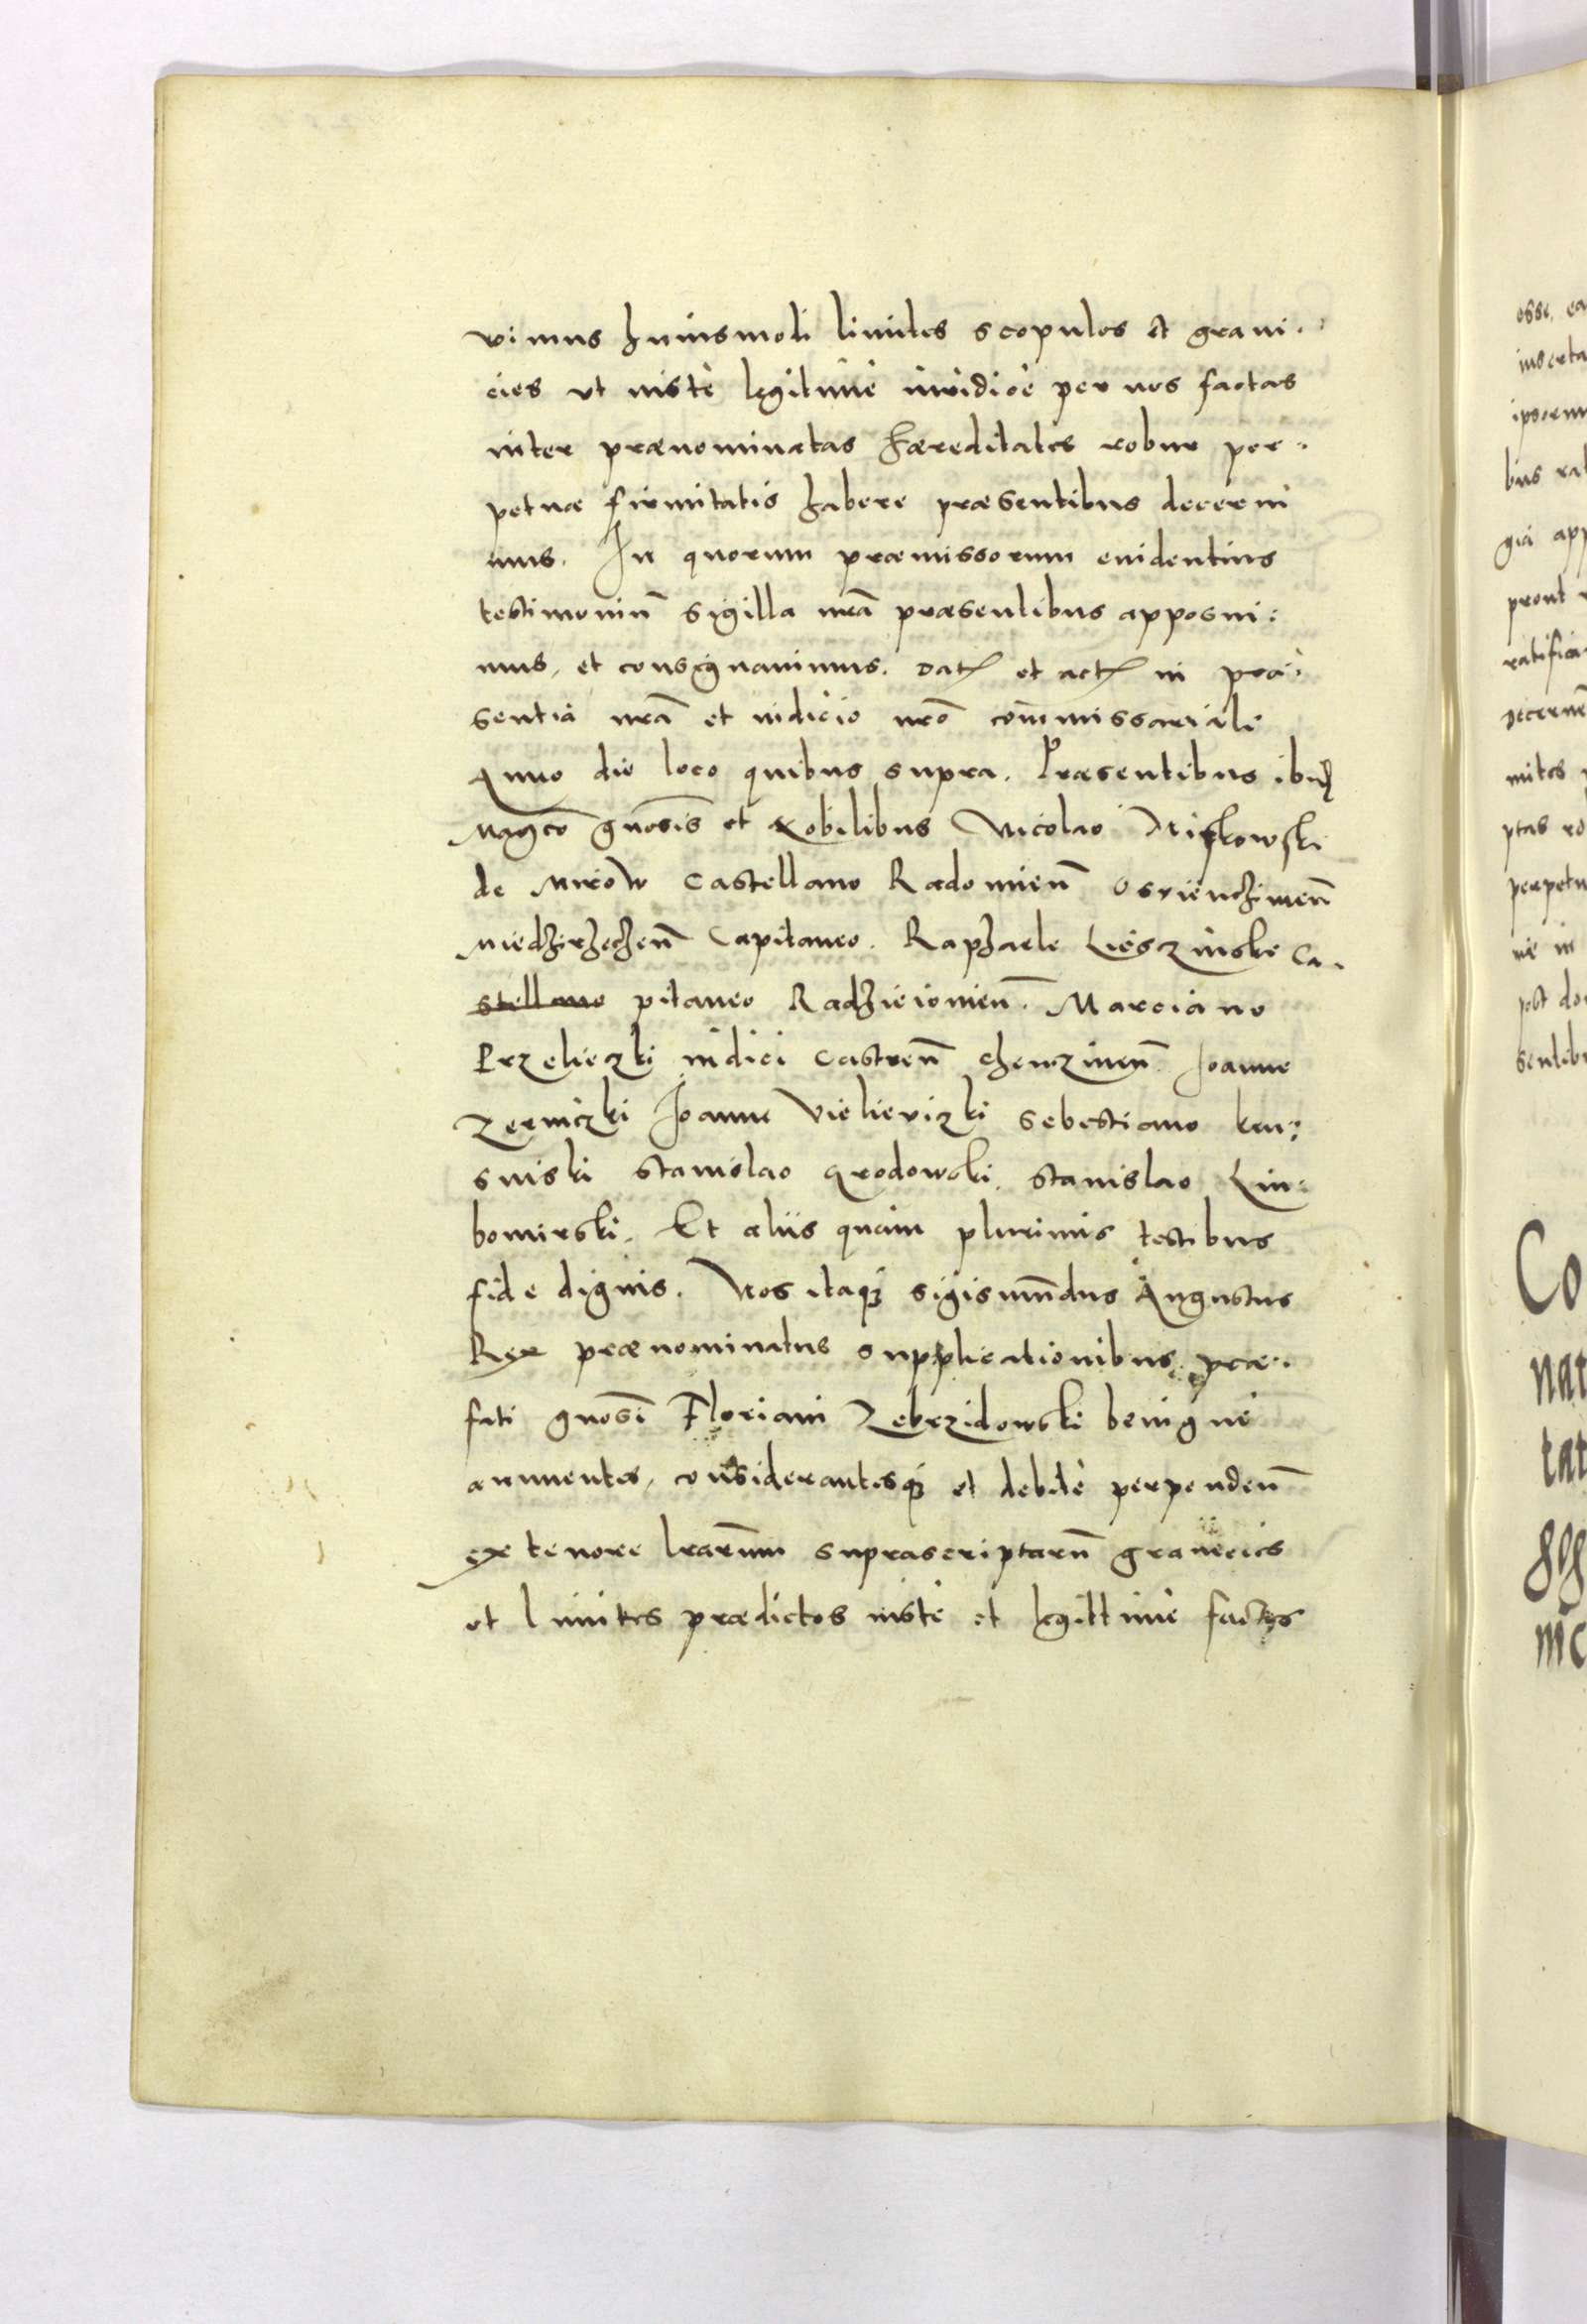 vimus huiusmodi limites scopulos et grani-
cies ut iuste legitime iuridice per nos factas
inter prænominatas hæreditates robur per-
petuæ firmitatis habere præsentibus decerni
mus. In quorum præmissorum evidentius
testimoniū sigilla nr̄a præsentibus apposui:
mus, et consignavimus. Datꝭ et actꝭ in præ-
sentia nr̄a et iudicio nr̄o com̄missariali
Anno die loco quibus supra. Præsentibus ibidꝭ
Magco gnosis et Nobilibus Nicolao Miskowski
de Mirow Castellano Radomien̄ Osvienczimen̄
Miedzirzeczen̄ Capitaneo. Raphaele Liesczinski Ca-
stellano pitaneo Radzieiomien̄. Marciano
Przelieczki iudici Castren̄ Chenczinen̄. Joanne
Zerniczki Joanne Vielieviczki Sebestiano Kan:
suiski Stanislao Grodowski. Stanislao Liu:
bomirski. Et aliis quam plurimis testibus
fide dignis. Nos itaqꝫ Sigismūndus Augustus
Rex prænominatus supplicationibus præ-
fati gnosi Floriani Zebrzidowski benigne
annuentes, considerantesqꝫ et debite perpenden̄
ex tenore lrarūm suprascriptarū granicies
et limites prædictos iuste et legittime factos
osse, ea
inserta
ipsorum
bus rat
gia app
prout
ratifica
decerne
mites
ptas ro
perpetu
in
post do
sentib
Co
nat
tat